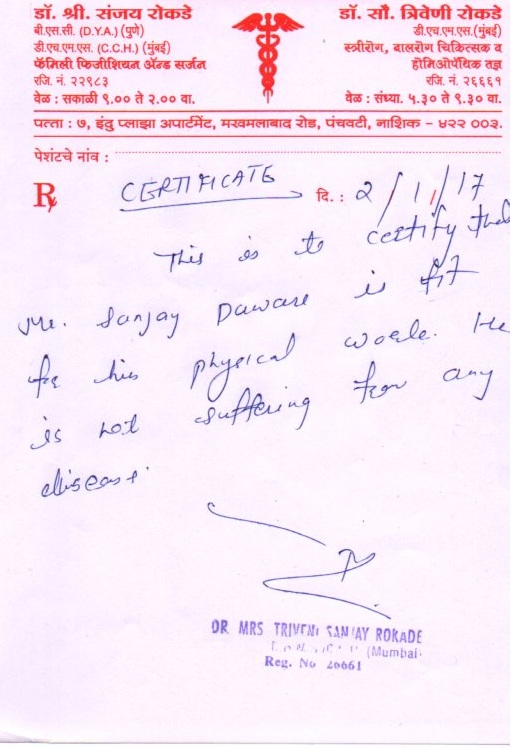 डॉ. श्री. संजय रोकडे
बी.एस.सी. (D.Y.A.) (पुणे)
डी.एच.एम.एस. (C.C.H.) (मुंबई)
फॅमिली फिजीशियन ॲन्ड सर्जन
रजि. नं. २२९८३
वेळ : सकाळी ९.०० ते २.०० वा.
डॉ. सौ. त्रिवेणी रोकडे
डी.एच.एम.एस.(मुंबई)
स्त्रीरोग, बालरोग चिकित्सक व
होमिओपॅथिक तज्ञ
रजि. नं. २६६६१
वेळ : संध्या. ५.३० ते ९.३० वा.
पत्ता : ७, इंदु प्लाझा अपार्टमेंट, मखमलाबाद रोड, पंचवटी, नाशिक – ४२२ ००३.
पेशंटचे नांव :
℞ CERTIFICATE दि. : 2/1/17
This is to certify that
Mr. Sanjay Daware is fit
for his physical work. He
is not suffering from any
disease.
DR. MRS TRIVENI SANJAY ROKADE
(Mumbai)
Reg. No 26661